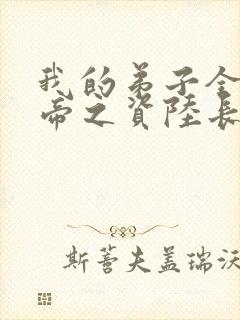 我的弟子全
帝之資陸長
斯蒼夫蓋瑞沃